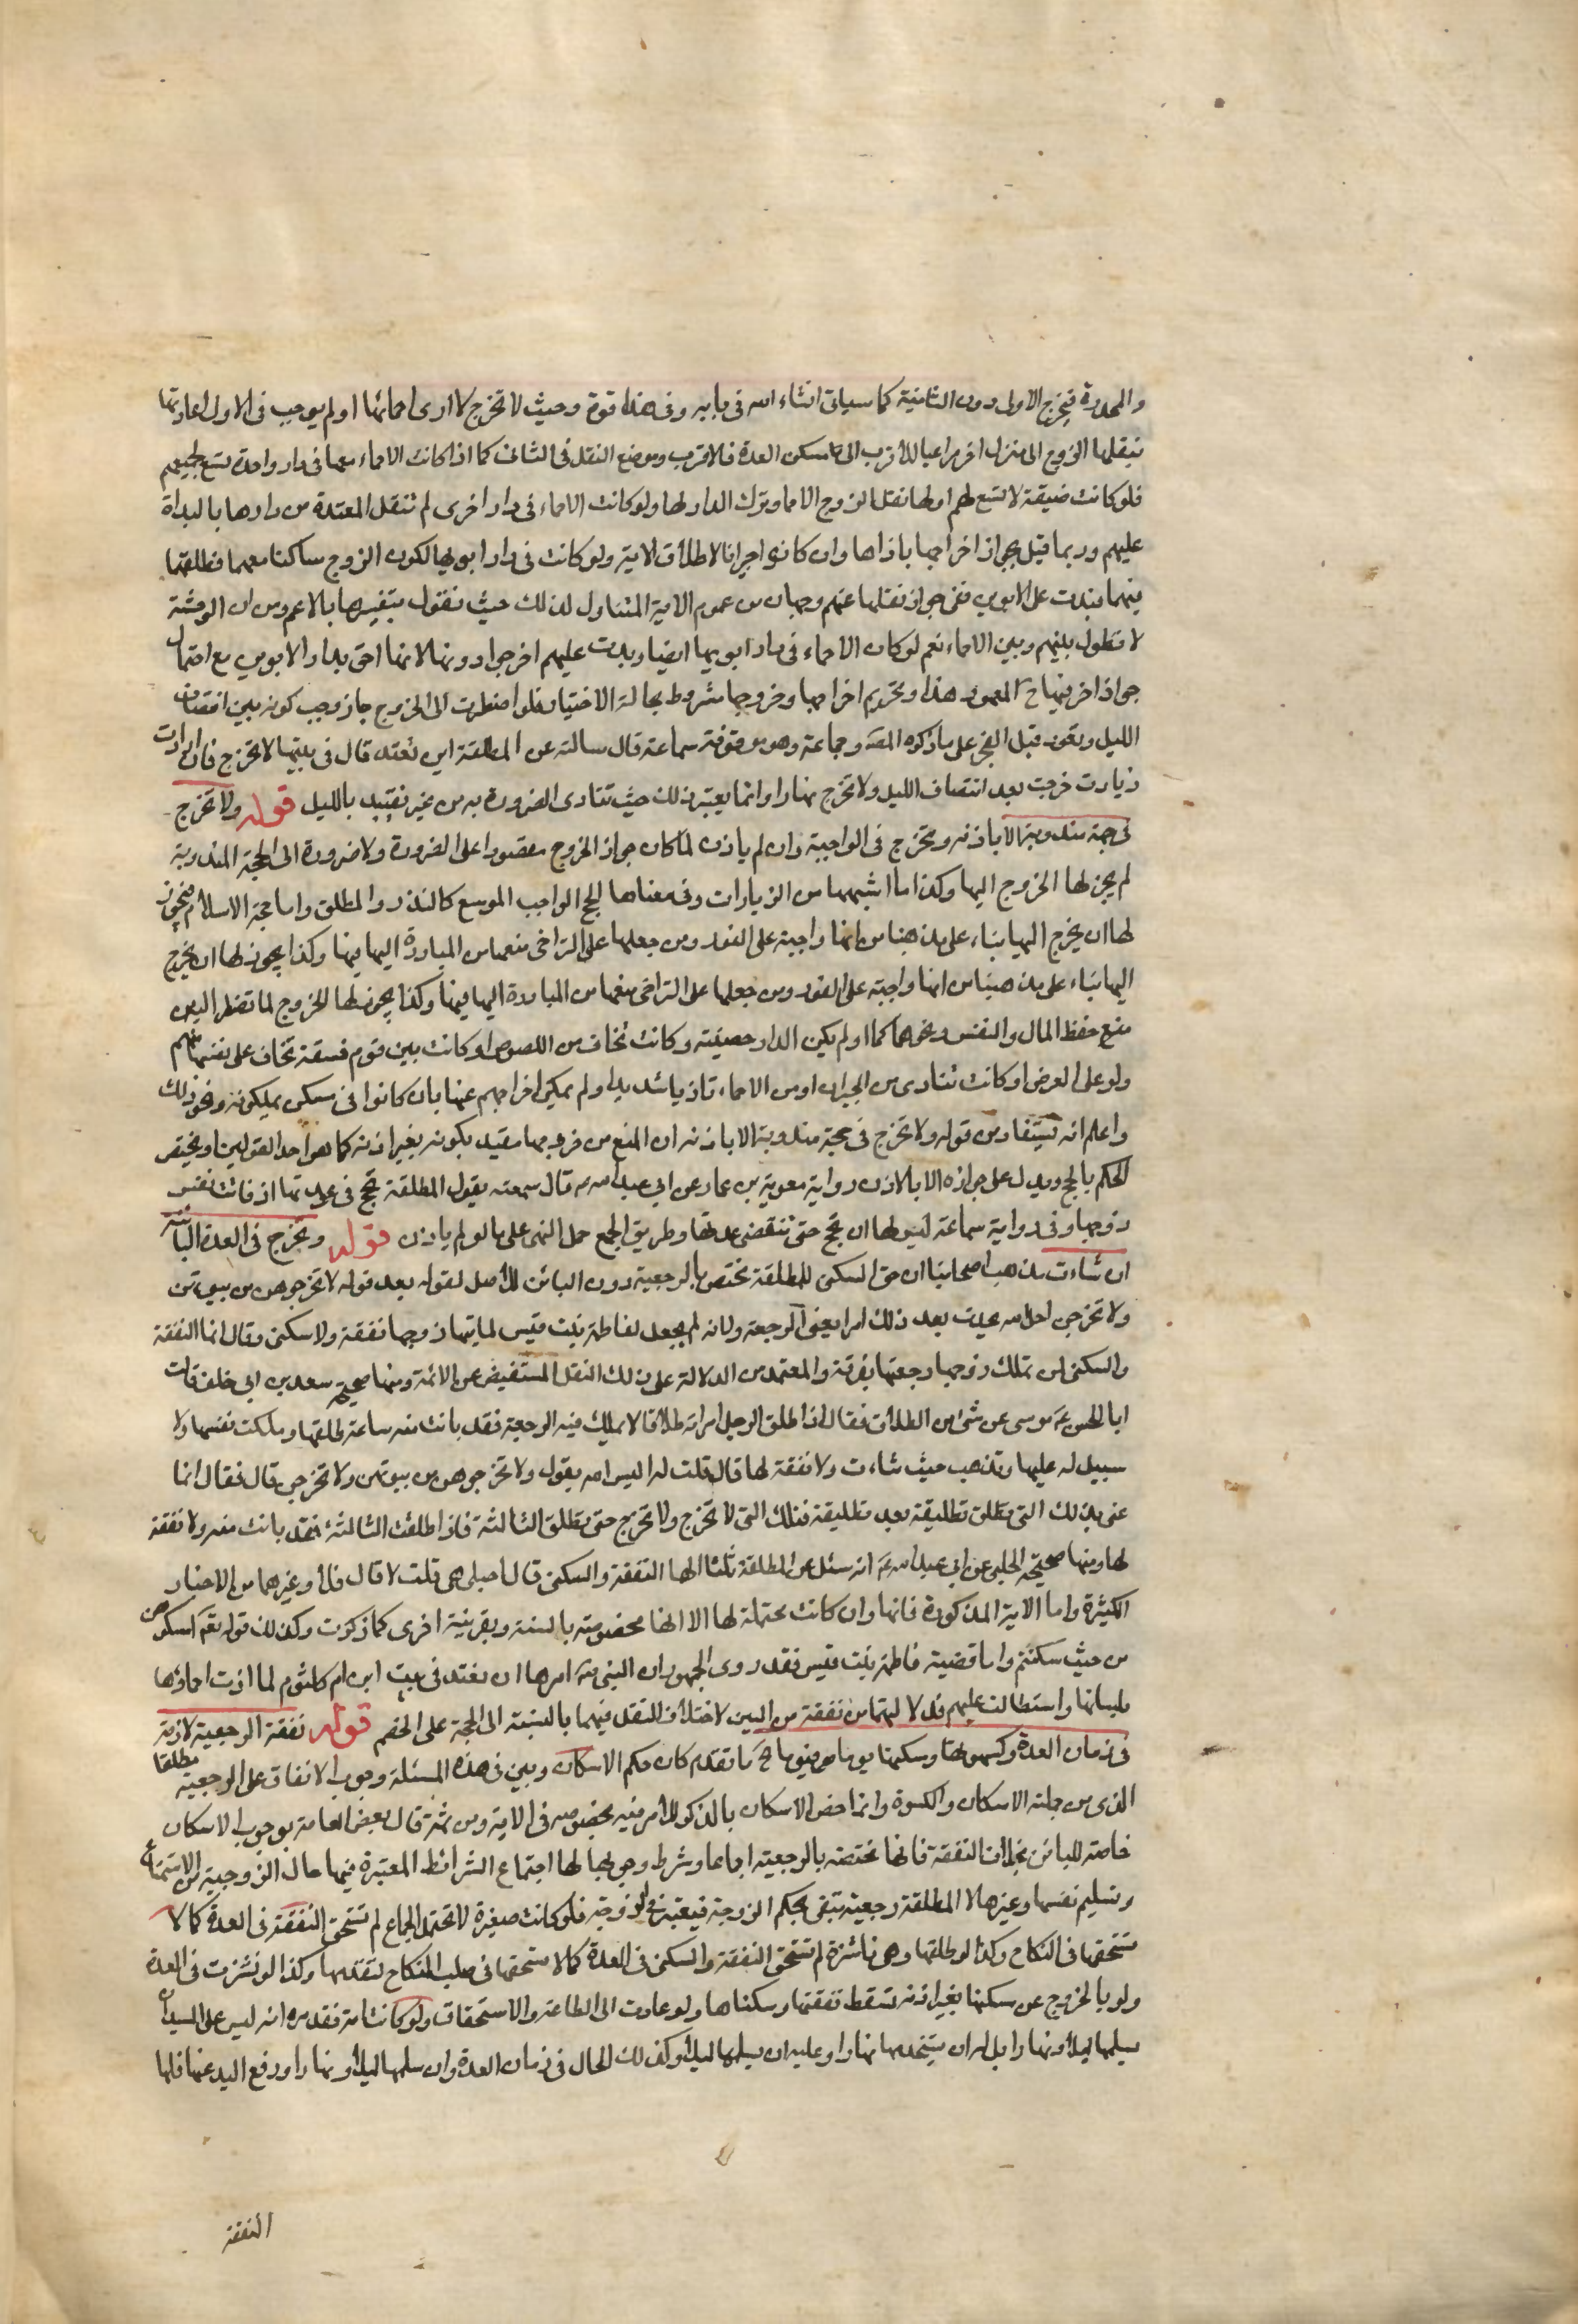 والمخدرة فيخرج الاولى دون الثانية كما سياتى انشاء الله فى بابه وفى هذا قوة وحيث لا تخرج لا ارى احمائها او لم يوجب فى الاول اعادتها
نبقلها الزوج الى منزل اخر مراعيا للأقرب الى مسكن العدة فالاقرب وموضع النقل فى الثانى كما اذا كانت الاحماء معها فى دار واحدة تسع لجميعهم
فلو كانت ضيقة لا تسع لهم او لها نقل الزوج الاحما وترك الدار لها ولو كانت الاحماء فى دار اخرى لم تنقل المعتدة من دارها بالبذاة
عليهم وربما قيل بجواز اخراجها باذاها وان كانوا جيرانا لاطلاق الاية ولو كانت فى دار ابويها لكون الزوج ساكنا معهما فطلقها
فيهما فبذت على الابوين ففى جواز نقلها عنهم وجهان من عموم الاية المتناول لذلك حيث نقول بتفسيرها بالاعم ومن ان الوحشة
لا تطول بينهم وبين الاحماء نعم لو كان الاحماء فى دار ابويها ايضا وبذت عليهم اخرجوا دونها لانها احق بدار الابوين مع احتمال
جواز اخراجها ح للعموم هذا وتحريم اخراجها وخروجها مشروط بحالة الاختيار فلو اضطرت الى الخروج جاز وجب كونه بين انتصاف
الليل وتعود قبل الفجر على ما ذكره المصَ وجماعة وهو موقوفة سماعة قال سالته عن المطلقة اين تعتد قال فى بيتها لا تخرج فان ارادت
زيارت خرجت بعد انتصاف الليل ولا تخرج نهارا وانما يعتبر ذلك حيث تتادى الضرورة به من غير تقييد بالليل قوله ولا تخرج
فى حجة مندوبة الا باذنه وتخرج فى الواجبة وان لم ياذن لما كان جواز الخروج مقصورا على الضرورة ولا ضرورة الى الحجة المندوبة
لم يجز لها الخروج اليها وكذا ما اشبهها من الزيارات وفى معناها الحج الواجب الموسع كالنذر والمطلق واما حجة الاسلام فيجوز
لها ان يخرج اليها بناء على مذهبنا من انها واجبة على الفور ومن جعلها على التراخى منعها من المبادرة اليها فيها وكذا يجوز لها ان يخرج
اليها بناء على مذهبنا من انها واجبة على الفور ومن جعلها على التراخى منعها من المبادرة اليها فيها وكذا يجوز لها الخروج لما تضطر اليه من
منع حفظ المال والنفس ونحوهما كما لو لم يكن الدار حصينة وكانت تخاف من اللصوص او كانت بين قوم فسقة تخاف على نفسها منهم
ولو على العرض او كانت تتادى من الجيران او من الاحماء تاذيا شديدا ولم يمكن اخراجهم عنها بان كانوا فى مسكن يملكونه ونحو ذلك
واعلم انه يستفاد من قوله ولا تخرج فى حجة مندوبة الا باذنه ان المنع من خروجها مقيد بكونه بغير اذنه كما هو احد القولين او يختص
الحكم بالحج ويدل على جوازه الا بالاذن رواية معوية بن عمار عن ابى عبد الله ع قال سمعته يقول المطلقة تحج فى عدتها اذ طابت نفس
زوجها وفى رواية سماعة ليس لها ان تحج حتى تنقضى عدتها وطريق الجمع حمل النهى على ما لو لم ياذن قوله وتخرج فى العدة الباينة
ان شاءت مذهب اصحابنا ان حق السكنى للمطلقة تختص بالرجعية دون البائن للأصل لقوله بعد قوله لا تخرجوهن من بيوتهن
ولا تخرجن لعل الله يحدث بعد ذلك امرا يعنى الرجعة ولانه لم يجعل لفاطمة بنت قيس لما بتها زوجها نفقة ولا سكنى وقال انما النفقة
والسكنى لمن تملك زوجها رجعتها بفرقة والمعتمد من الدلالة على ذلك النقل المستفيض عن الائمة ومنها صحيحة سعد بن ابى خلف قال سالت
ابا الحسن ع موسى عن شئ من الطلاق فقال اذا طلق الرجل امراته طلاقا لا يملك فيه الرجعة فقد بانت منه ساعة طلقها وملكت نفسها ولا
سبيل له عليها وتذهب حيث شاءت ولا نفقة لها قال قلت له اليس الله يقول ولا تخرجوهن من بيوتهن ولا تخرجن قال فقال انما
عنى بذلك التى تطلق تطليقة بعد تطليقة فتلك التى لا تخرج ولا تخرج حتى تطلق الثالثة فاذا طلقت الثالثة فقد بانت منه ولا نفقة
لها ومنها صحيحة الحلبى عن ابى عبد الله ع انه سئل عن المطلقة ثلثا الها النفقة والسكنى قال احبلى هى قلت لا قال فلا وغيرهما من الاخبار
الكثيرة واما الاية المذكورة فانها وان كانت محتملة لها الا انها مخصوصة بالسنة وبقرينة اخرى كما ذكرت وكذلك قوله تعَ اسكنوهن
من حيث سكنتم واما قضية فاطمة بنت قيس فقد روى الجمهور ان النبى ص امرها ان تعتد فى بيت ابن ام كلثوم لما اذت احماؤها
بلسانها واستطالت عليهم فلا لالتماس نفقة من البين لاختلاف النقل فيها بالنسبة الى الحجة على الخصم قوله نفقة الرجعية لازمة
فى زمان العدة وكسوتها وسكنها يوما فيوما لمَا تقدم كان حكم الاسكان وبين فى هذه المسئلة وجوب الانفاق على الرجعية مطلقا
الذى من جملته الاسكان والكسوة وانما خص الاسكان بالذكر للأمر فيه بخصوصه فى الاية ومن ثمة قال بعض العامة بوجوب الاسكان
خاصة للبائن بخلاف النفقة فانها مختصة بالرجعية اجماعا وشرط وجوبها لها اجتماع الشرائط المعتبرة فيها حال الزوجية من الاستمتاع
وتسليم نفسها وغيرها لا المطلقة رجعية تبقى بحكم الزوجة فيعتبر فى الزوجة فلو كانت صغيرة لا تحتمل الجماع لم تستحق النفقة فى العدة كما لا
تستحقها فى النكاح وكذا لو طلقها وهى ناشزة لم تستحق النفقة والسكنى فى العدة كما لا تستحقها فى صلب النكاح لتقدمها وكذا لو نشزت فى العدة
ولو بالخروج عن سكنها بغير اذنه تسقط نفقتها وسكناها ولو عادت الى الطاعة والاستحقاق ولو كانت امة فقد مر انه ليس على السيد ان
يسلمها ليلا ونهارا بل له ان يستخدمها نهارا وعليه ان يسلمها ليلا وكذلك الحال فى زمان العدة وان سلمها ليلا ونهارا ورفع اليد عنها فلها
النفقة